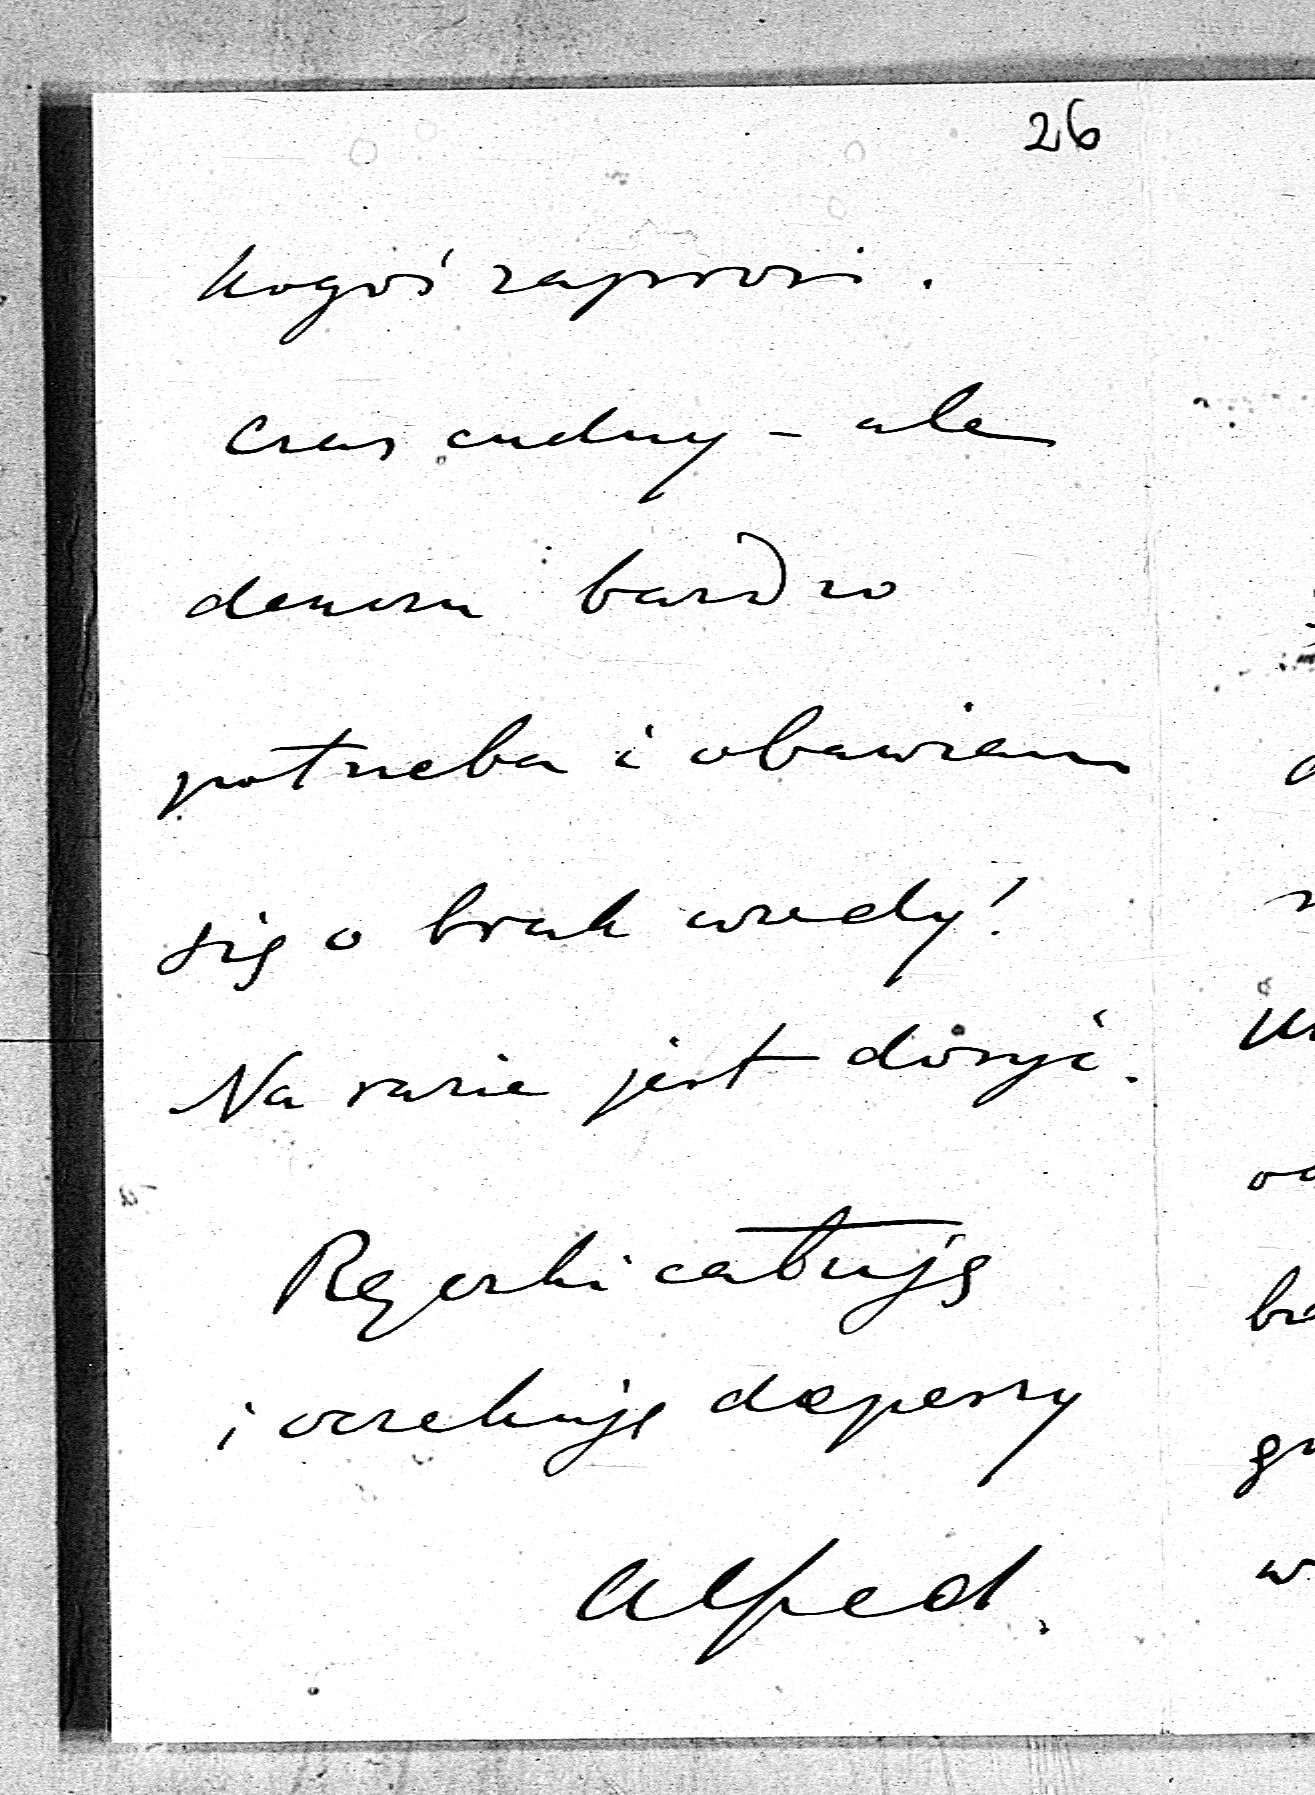 26
kogoś zaprosi.
Czas cudny - ale
deszczu bardzo
potrzeba i obawiam
się o brak wody!
Na razie jest dosyć.
Rączki całuję
i oczekuję depeszy
Alfred.